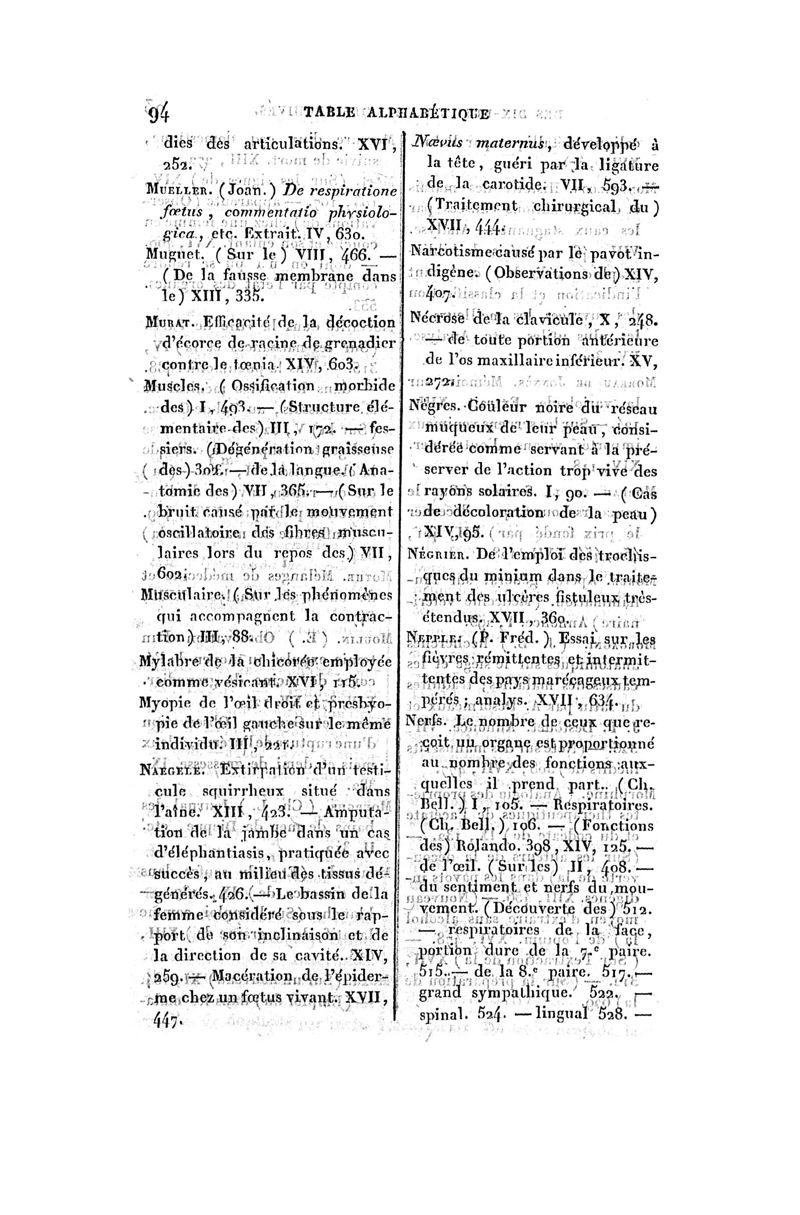 94
TABLE ALPHABÉTIQUE
dies des articulations. XVI,
252.
MUELLER. (Joan.) De respiratione
fœtus, commentatio physiolo-
gica, etc. Extrait. IV, 630.
Muguet. (Sur le) VIII, 466. —
(De la fausse membrane dans
le) XIII, 335.
MURAT. Efficacité de la décoction
d'écorce de racine de grenadier
contre le tœnia. XIV, 603.
Muscles. (Ossification morbide
des) I, 493. — (Structure élé-
mentaire des) III, 172. — fes-
siers. (Dégénération graisseuse
des) 302. — de la langue. (Ana-
tomie des) VII, 365. — (Sur le
bruit causé par le mouvement
oscillatoire des fibres muscu-
laires lors du repos des) VII,
602.
Musculaire. (Sur les phénomènes
qui accompagnent la contrac-
tion) III, 88.
Mylabre de la chicorée employée
comme vésicant. XVI, 115.
Myopie de l'œil droit et presbyo-
pie de l'œil gauche sur le même
individu. III, 221.
NAEGELE. Extirpation d'un testi-
cule squirrheux situé dans
l'aîne. XIII, 423. — Amputa-
tion de la jambe dans un cas
d'éléphantiasis, pratiquée avec
succès, au milieu des tissus dé-
générés. 426. — Le bassin de la
femme considéré sous le rap-
port de son inclinaison et de
la direction de sa cavité. XIV,
259. — Macération de l'épider-
me chez un fœtus vivant. XVII,
447.
Nævus maternus, développé à
la tête, guéri par la ligature
de la carotide. VII, 593. —
(Traitement chirurgical du)
XVII, 444.
Narcotisme causé par le pavot in-
digène. (Observations de) XIV,
407.
Nécrose de la clavicule, X, 248.
— de toute portion antérieure
de l'os maxillaire inférieur. XV,
272.
Nègres. Couleur noire du réseau
muqueux de leur peau, consi-
dérée comme servant à la pré-
server de l'action trop vive des
rayons solaires. I, 90. — (Cas
de décoloration de la peau)
XIV, 95.
NÉGRIER. De l'emploi des trochis-
ques du minium dans le traite-
ment des ulcères fistuleux très-
étendus. XVII, 360.
NEPPLE. (P. Fréd.) Essai sur les
fièvres rémittentes et intermit-
tentes des pays marécageux tem-
pérés; analys. XVII, 634.
Nerfs. Le nombre de ceux que re-
çoit un organe est proportionné
au nombre des fonctions aux-
quelles il prend part. (Ch.
Bell.) I, 105. — Respiratoires.
(Ch. Bell.) 106. — (Fonctions
des) Rolando. 398, XIV, 125. —
de l'œil. (Sur les) II, 408. —
du sentiment et nerfs du mou-
vement. (Découverte des) 512.
— respiratoires de la face,
portion dure de la 7.e paire.
515. — de la 8.e paire. 517. —
grand sympathique. 522. —
spinal. 524. — lingual 528. —